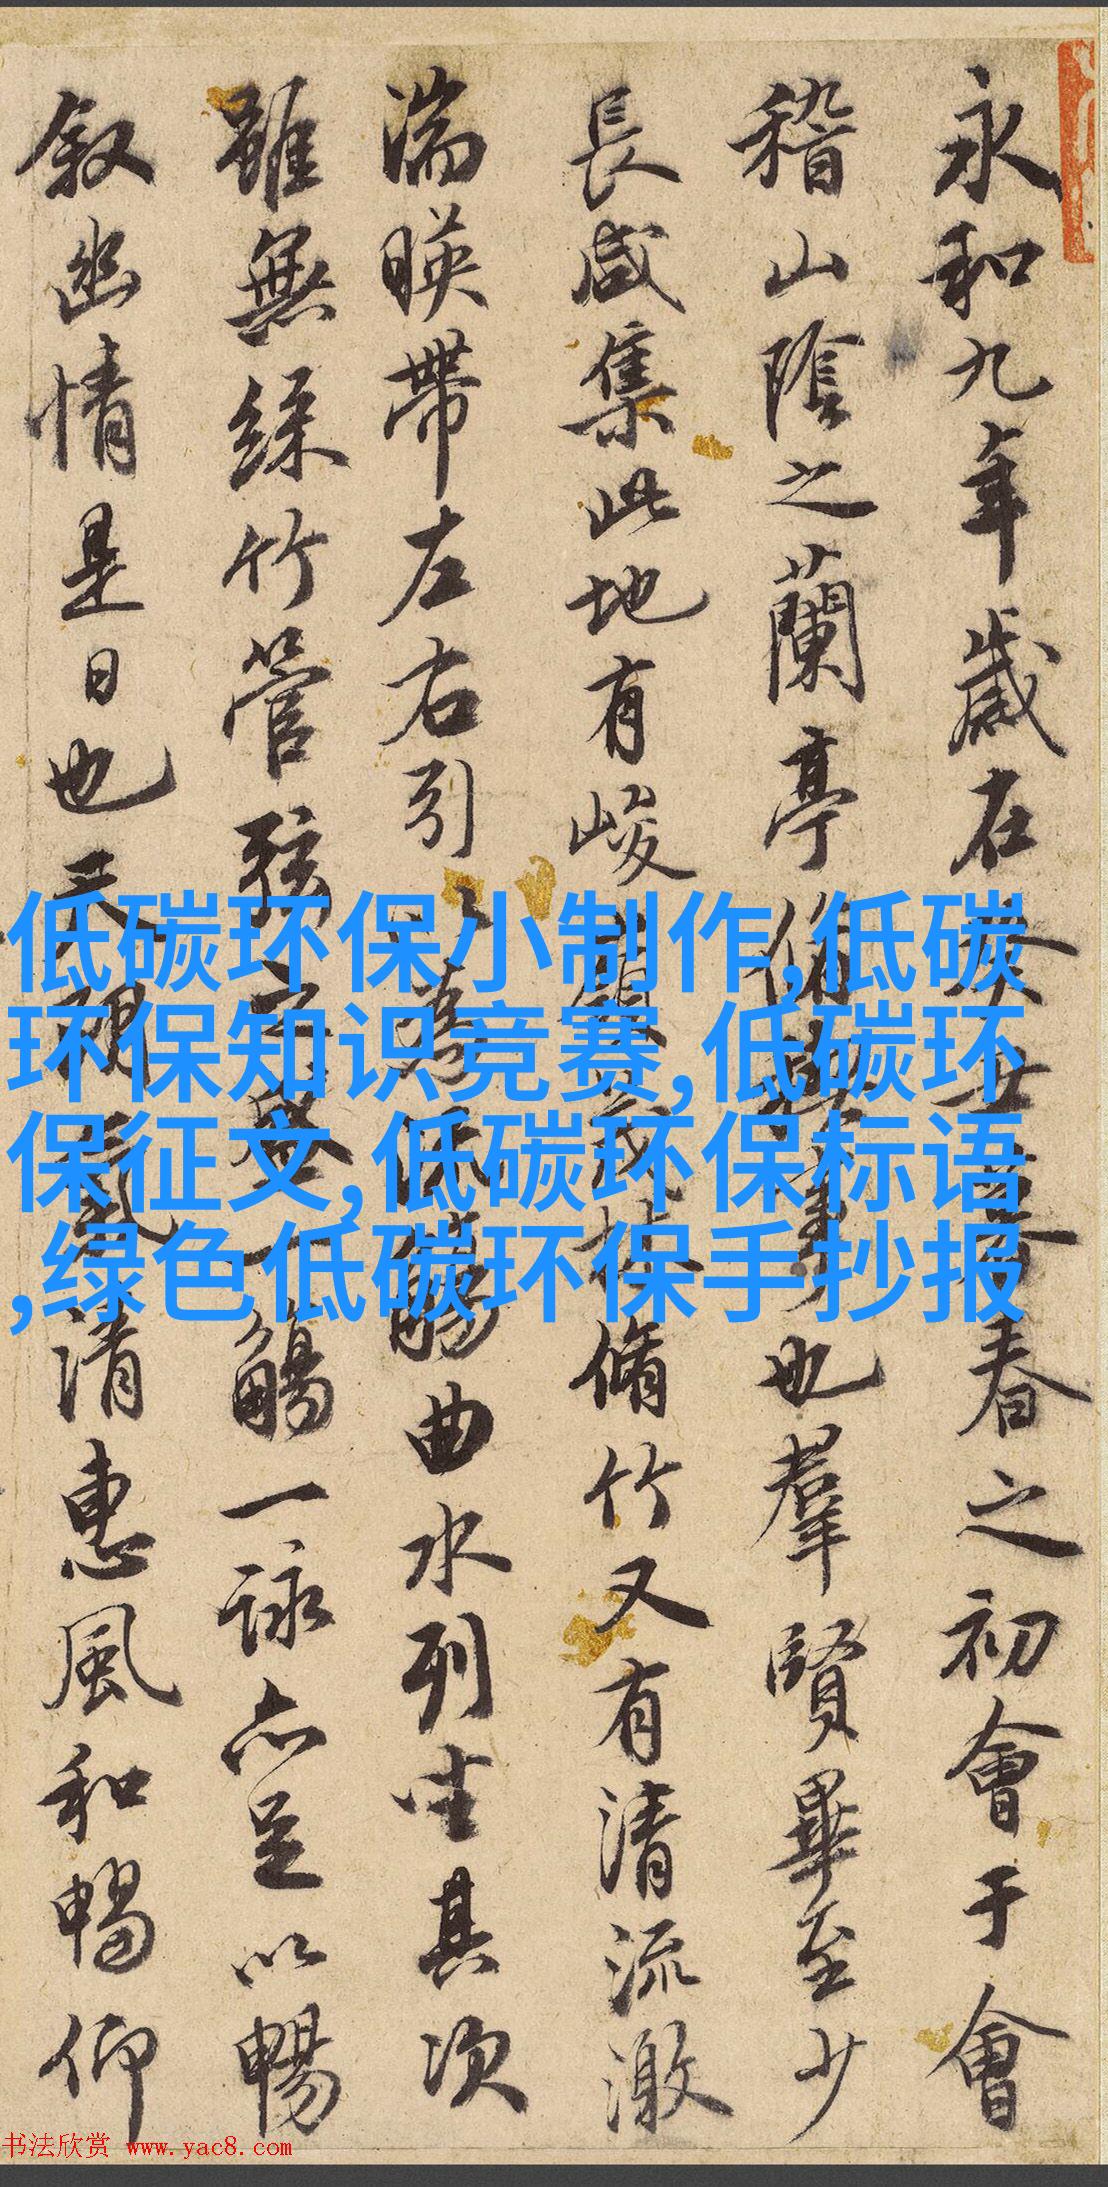 永和九年歲在癸丑暮春之初會于會
稽山陰之蘭亭脩禊事也羣賢畢至少
長咸集此地有峻領茂林脩竹又有清流激
湍暎帶左右引以為流觴曲水列坐其次
雖無絲竹管弦之盛一觴一詠亦足以暢
叙幽情是日也天朗氣清惠風和暢仰
低碳环保小制作,低碳
环保知识竞赛,低碳环
保征文,低碳环保标语
,绿色低碳环保手抄报
书法欣赏 www.yac8.com